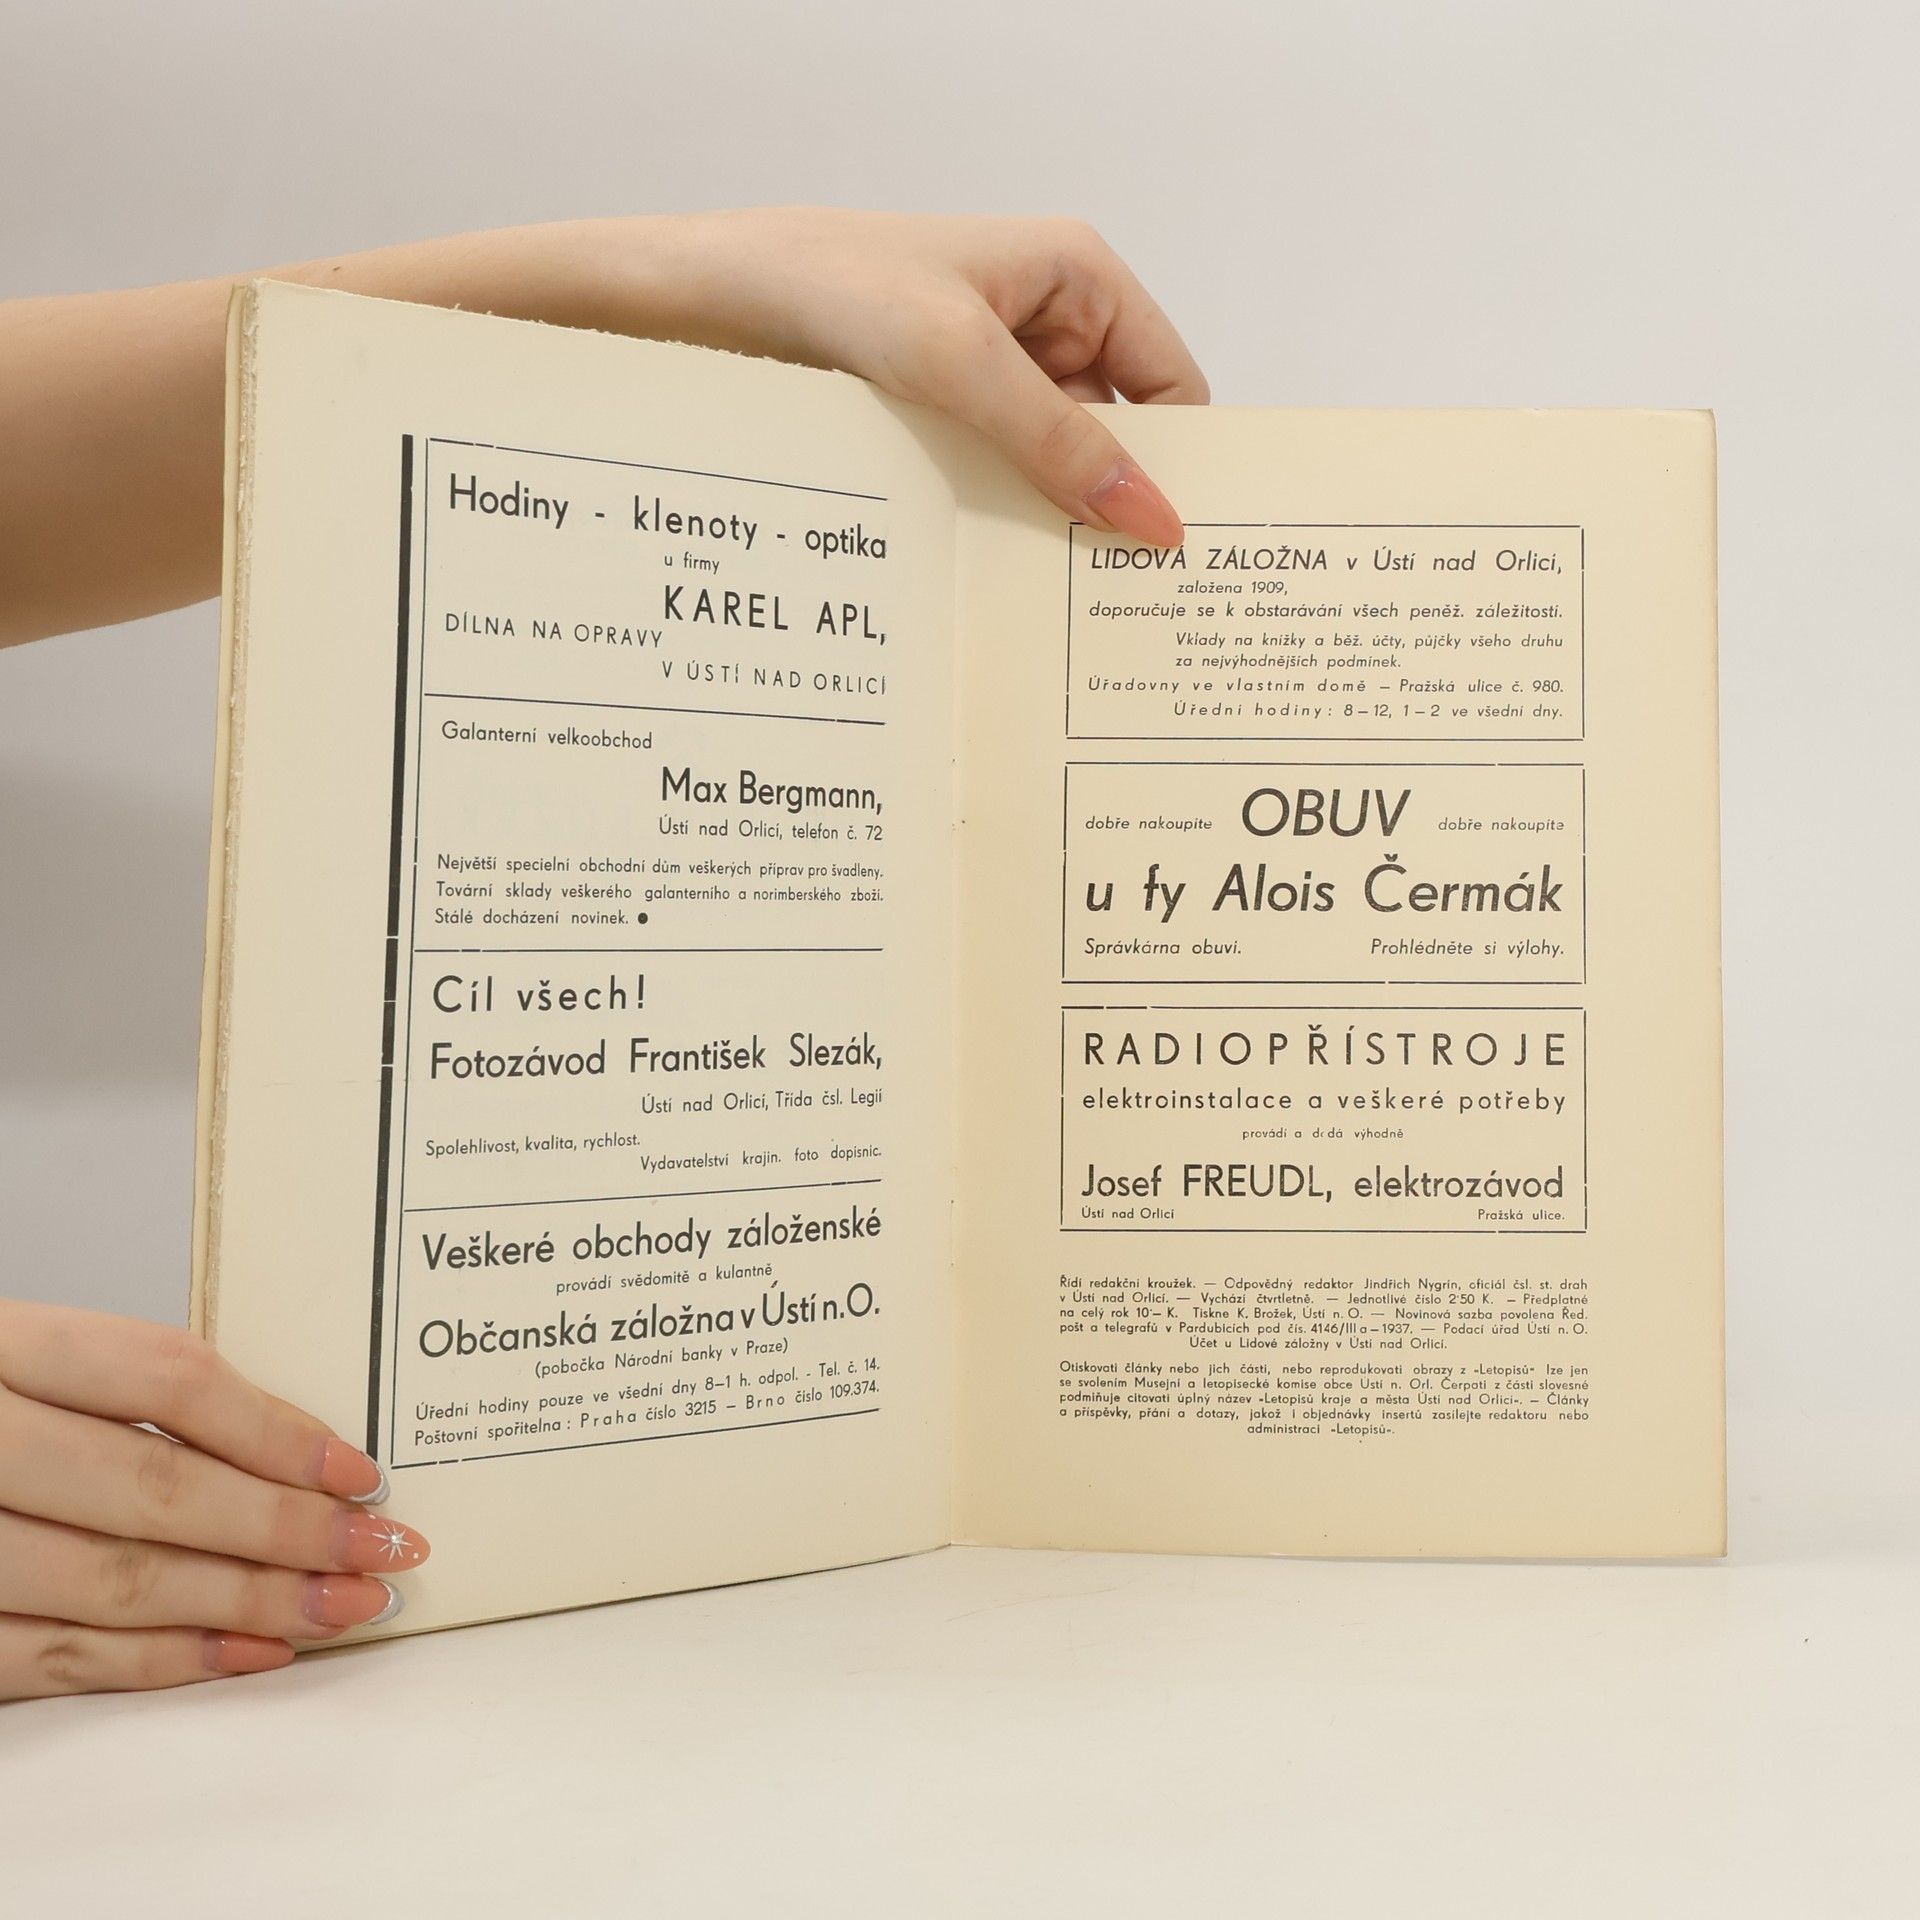 Hodiny - klenoty - optika
u firmy
KAREL APL,
DÍLNA NA OPRAVY
V ÚSTÍ NAD ORLICÍ
Galanterní velkoobchod
Max Bergmann,
Ústí nad Orlicí, telefon č. 72
Největší specielní obchodní dům veškerých příprav pro švadleny.
Tovární sklady veškerého galanterního a norimberského zboží.
Stálé docházení novinek. ●
Cíl všech!
Fotozávod František Slezák,
Ústí nad Orlicí, Třída čsl. Legií
Spolehlivost, kvalita, rychlost.
Vydavatelství krajin. foto dopisnic.
Veškeré obchody záloženské
provádí svědomitě a kulantně
Občanská záložna v Ústí n. O.
(pobočka Národní banky v Praze)
Úřední hodiny pouze ve všední dny 8–1 h. odpol. - Tel. č. 14.
Poštovní spořitelna: Praha číslo 3215 – Brno číslo 109.374.
LIDOVÁ ZÁLOŽNA v Ústí nad Orlicí,
založena 1909,
doporučuje se k obstarávání všech peněž. záležitostí.
Vklady na knížky a běž. účty, půjčky všeho druhu
za nejvýhodnějších podmínek.
Úřadovny ve vlastním domě – Pražská ulice č. 980.
Úřední hodiny: 8–12, 1–2 ve všední dny.
dobře nakoupíte OBUV dobře nakoupíte
u fy Alois Čermák
Správkárna obuvi. Prohlédněte si výlohy.
RADIOPŘÍSTROJE
elektroinstalace a veškeré potřeby
provádí a dodá výhodně
Josef FREUDL, elektrozávod
Ústí nad Orlicí Pražská ulice.
Řídí redakční kroužek. — Odpovědný redaktor Jindřich Nygrín, oficiál čsl. st. drah
v Ústí nad Orlicí. — Vychází čtvrtletně. — Jednotlivé číslo 2·50 K. — Předplatné
na celý rok 10·— K. Tiskne K. Brožek, Ústí n. O. — Novinová sazba povolena Řed.
pošt a telegrafů v Pardubicích pod čís. 4146/III a–1937. — Podací úřad Ústí n. O.
Účet u Lidové záložny v Ústí nad Orlicí.
Otiskovati články nebo jich části, nebo reprodukovati obrazy z »Letopisů« lze jen
se svolením Musejní a letopisecké komise obce Ústí n. Orl. Čerpati z části slovesné
podmiňuje citovati úplný název »Letopisů kraje a města Ústí nad Orlicí«. — Články
a příspěvky, přání a dotazy, jakož i objednávky insertů zasílejte redaktoru nebo
administraci »Letopisů«.